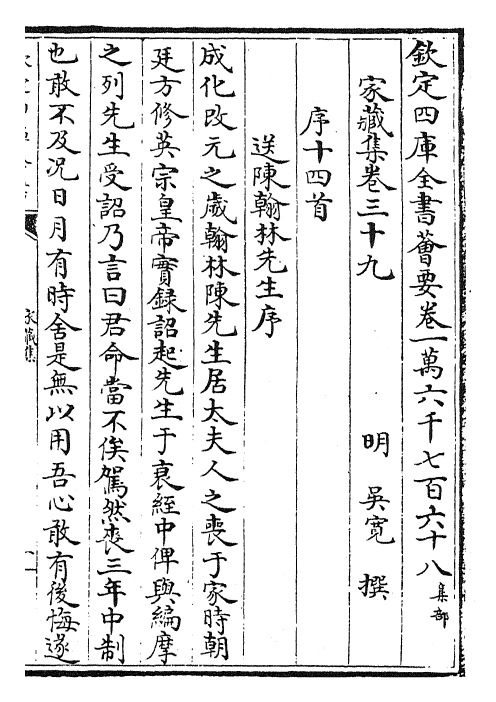 欽定四庫全書薈要卷一萬六千七百六十八 集部
家藏集卷三十九 明 吳寬 撰
序十四首
送陳翰林先生序
成化改元之歲翰林陳先生居太夫人之喪于家時朝
廷方修英宗皇帝實録詔起先生于衰絰中俾與編摩
之列先生受詔乃言曰君命當不俟駕然喪三年中制
也敢不及况日月有時舍是無以用吾心敢有後悔遂
家藏集